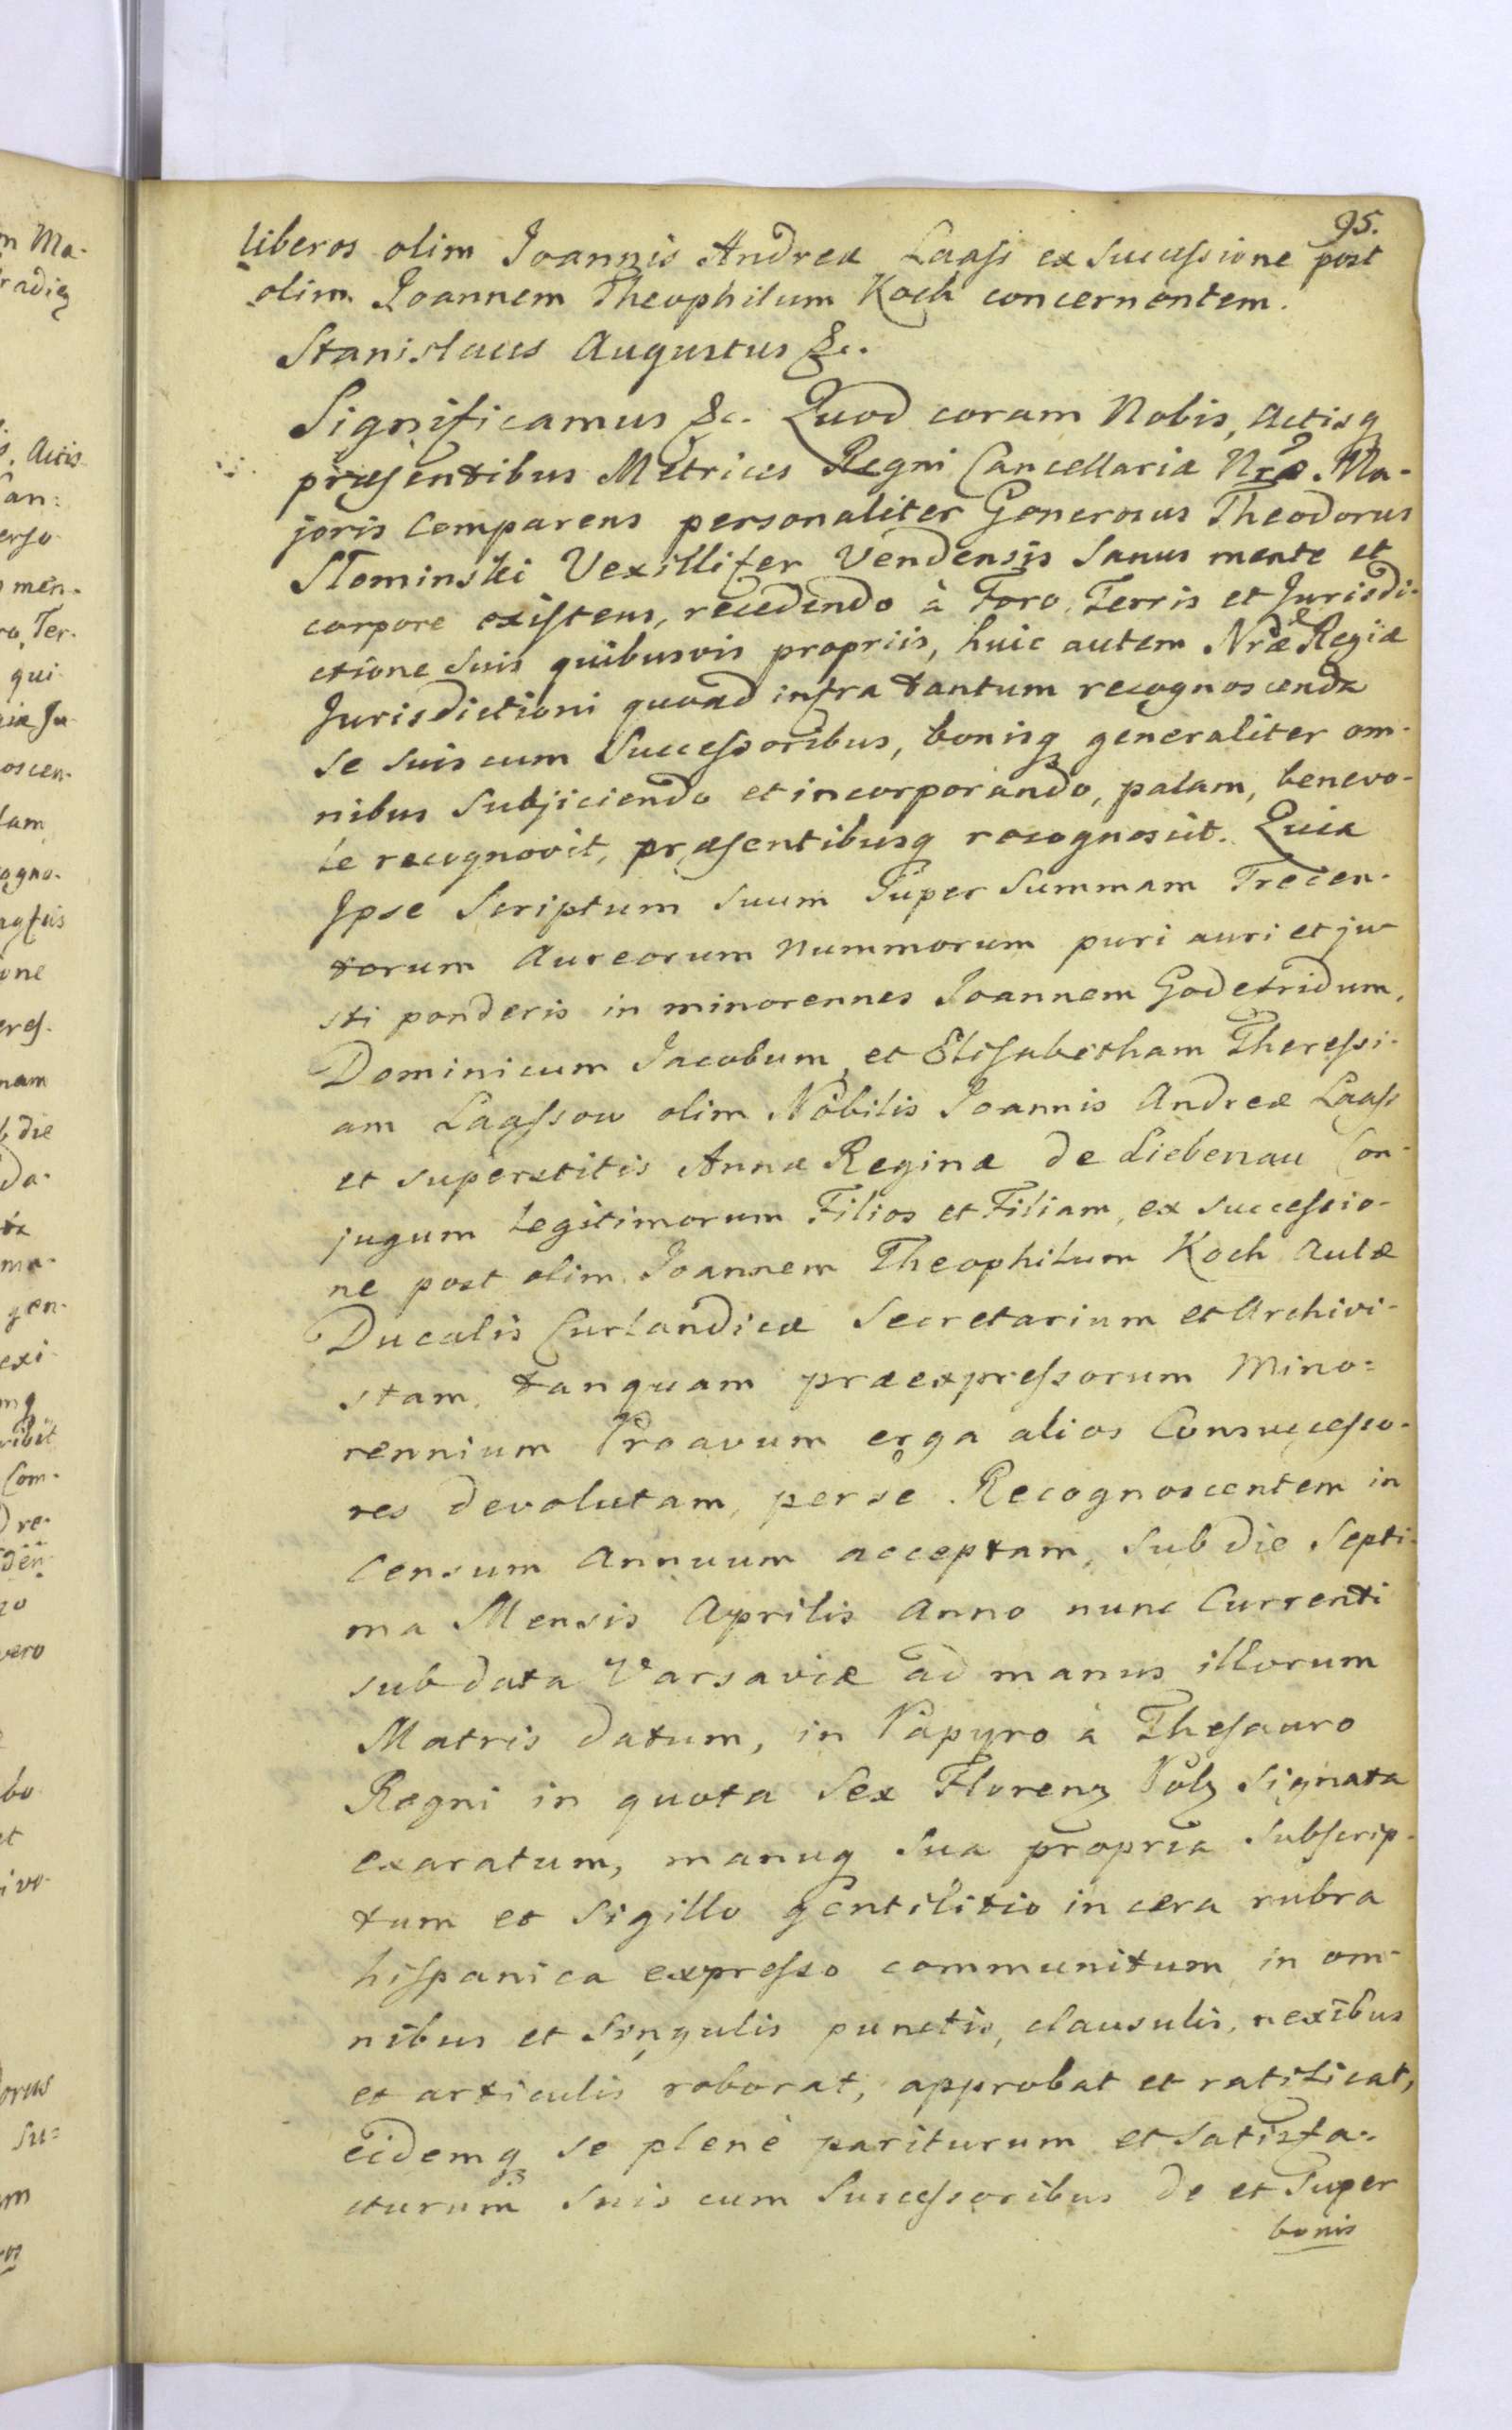 95.
liberos olim Joannis Andreæ Laass ex Successione post
olim Joannem Theophilum Koch concernentem.
Stanislaus Augustus &c.
Significamus &c. Quod coram Nobis, Actisq
præsentibus Metrices Regni Cancellariæ Nræ Ma-
joris Comparens personaliter Generosus Theodorus
Słominski Vexillifer Vendensis Sanus mente et
corpore existens, recedendo à Foro, Terris et Jurisdi-
ctione Suis quibusvis propriis, huic autem Nræ Regiæ
Jurisdictioni quoad infra tantum recognoscenda
se suis cum Successoribus, bonisq generaliter om-
nibus Subjiciendo et incorporando, palam, benevo-
le recognovit, præsentibusq recognoscit. Quia
Ipse Scriptum Suum Super Summam Trecen-
torum Aureorum Nummorum puri auri et ju-
sti ponderis in minorennes Joannem Godefridum,
Dominicum Jacobum, et Elisabetham Theressi-
am Laassow olim Nobilis Joannis Andreæ Laass
et superstitis Annæ Reginæ de Liebenau Con-
jugum Legitimorum Filios et Filiam, ex successio-
ne post olim Joannem Theophilum Koch Aulæ
Ducalis Curlandicæ Secretarium et Archivi-
stam, tanquam præexpressorum Mino=
rennium Proavum erga alios Consuccesso-
res devolutam, per se Recognoscentem in
Censum Annuum acceptam, sub die Septi-
ma Mensis Aprilis Anno nunc Currenti
sub data Varsaviæ ad manus illorum
Matris datum, in Papyro à Thesauro
Regni in quota Sex Florenz Polz Signata
exaratum, manuq Sua propria Subscrip-
tum et Sigillo gentilitio in cera rubra
hispanica expresso communitum, in om-
nibus et Singulis punctis, clausulis, nexibus
et articulis roborat, approbat et ratificat,
eidemq se plenè pariturum et satisfa-
cturum Suis cum Successoribus de et Super
bonis